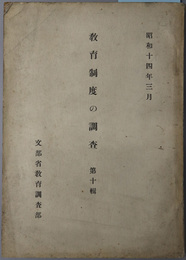 昭和十四年三月
教育制度の調査 第十輯
文部省教育調査部